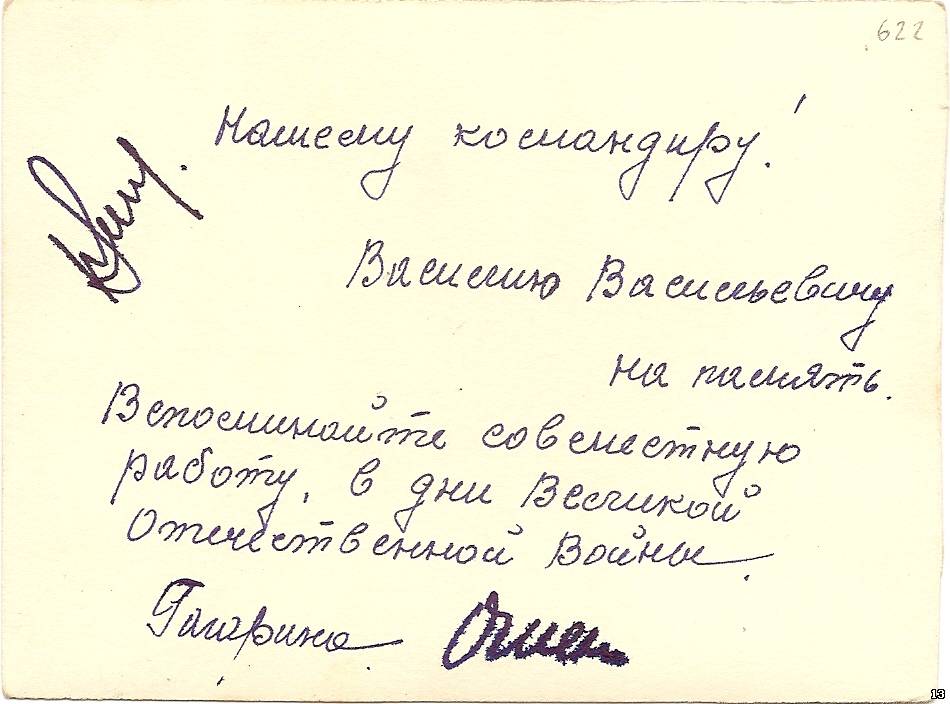 622
Нашему командиру!
Василию Васильевичу
на память.
Вспоминайте совместную
работу, в дни Великой
Отечественной Войны.
Гагарина
13